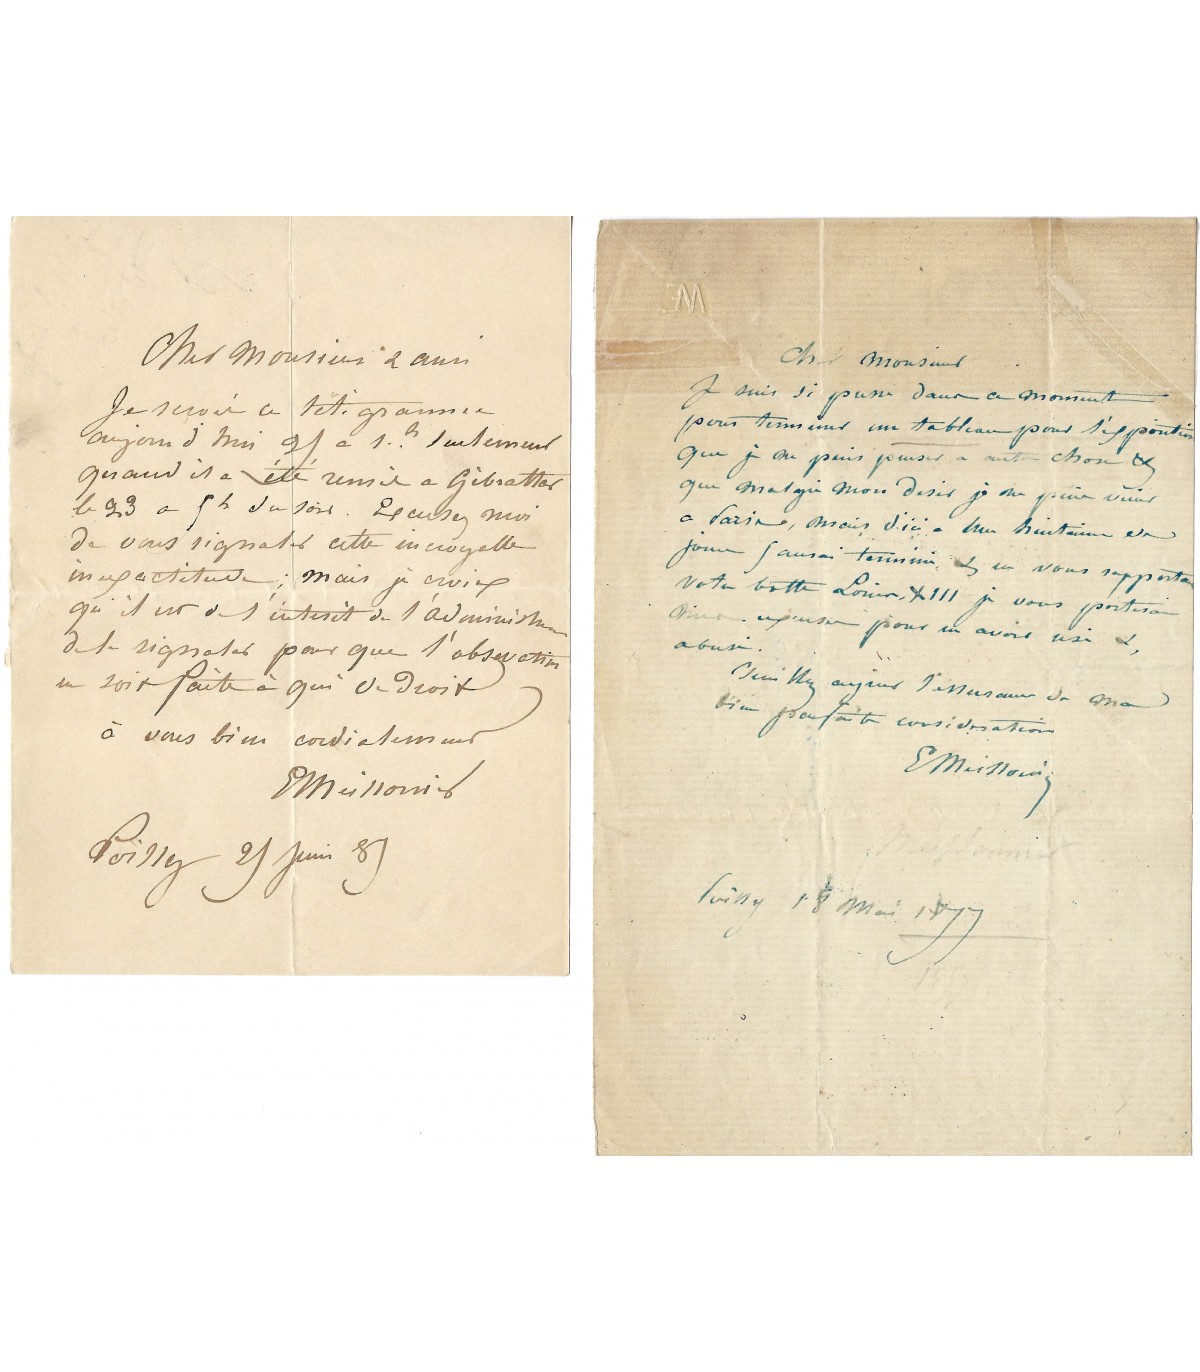 Cher Monsieur & ami
Je reçois ce télégramme
aujourd'hui 25 a 1.h seulement
quand il a été remis a Gibraltar
le 23 a 5h du soir. Excusez moi
de vous signaler cette incroyable
inexactitude; mais je crois
qu'il est de l'intérêt de l'administration
de le signaler pour que l'observation
en soit faite à qui de droit
à vous bien cordialement
EMeissonier
Poissy 25 juin 85
EM
Cher Monsieur
Je suis si pressé dans ce moment
pour terminer un tableau pour l'exposition
que je ne puis penser a autre chose &
que malgré mon desir je ne puis venir
a Paris, mais d'ici a une huitaine de
jours j'aurai terminé, & en vous rapportant
votre botte Louis XIII je vous porterai
excuses pour en avoir usé &
abusé.
Veuillez agréer l'assurance de ma
bien parfaite considération
EMeissonier
Meissonnier
Poissy 18 Mai 1877